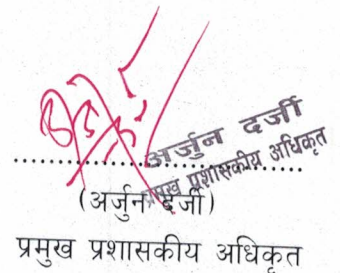 अर्जुन दर्जी
प्रमुख प्रशासकीय अधिकृत
(अर्जुन दर्जी)
प्रमुख प्रशासकीय अधिकृत